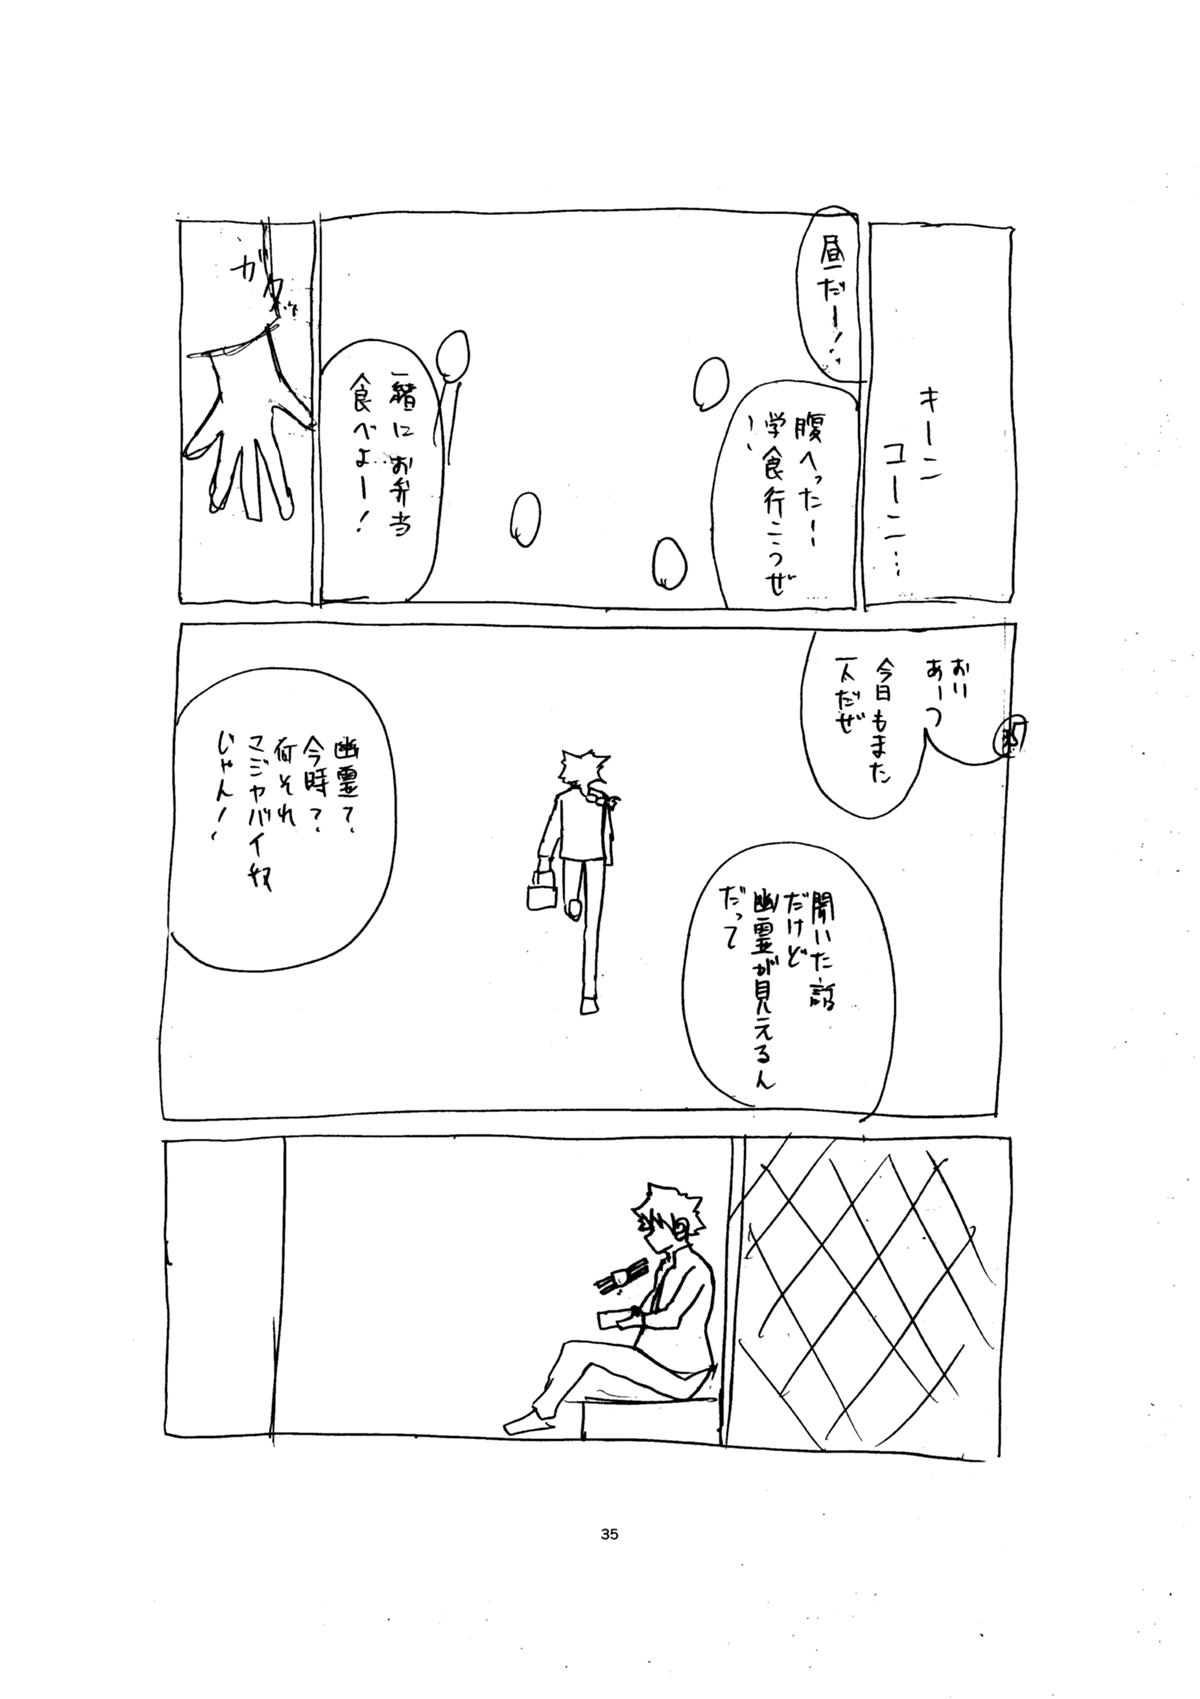 キーン
コーン…
昼だー!
腹へったー
学食行こうぜ
!
一緒にお弁当
食べよー!
ガタッ
おい
あーつ
今日もまた
一人だぜ
聞いた話
だけど
幽霊が見えるん
だって
幽霊?
今時?
何それ
マジヤバイ奴
じゃん!
35